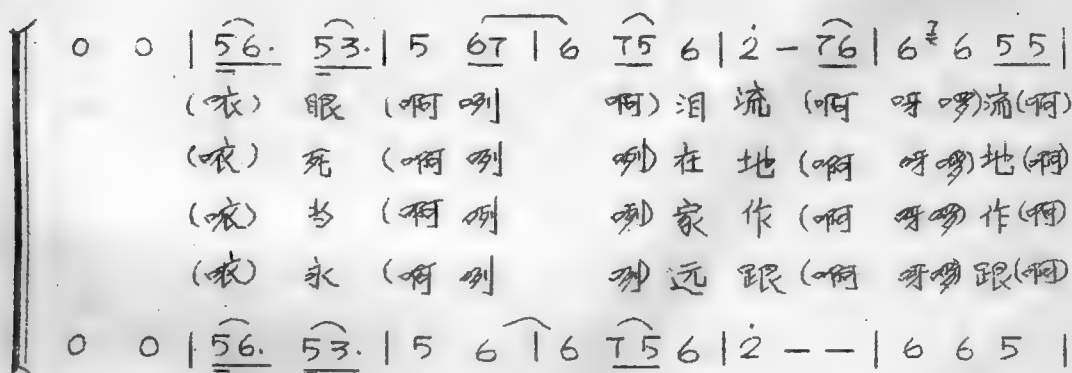 0 0 | 56. 53. | 5 67 | 6 75 6 | 2̇ - 76 | 6 6 55 |
(哝) 眼 (啊 咧 啊) 泪 流 (啊 呀 啰) 流 (啊)
(哝) 死 (啊 咧 咧) 在 地 (啊 呀 啰) 地 (啊)
(哝) 当 (啊 咧 咧) 家 作 (啊 呀 啰) 作 (啊)
(哝) 永 (啊 咧 咧) 远 跟 (啊 呀 啰) 跟 (啊)
0 0 | 56. 53. | 5 6 | 6 75 6 | 2̇ - - | 6 6 5 |